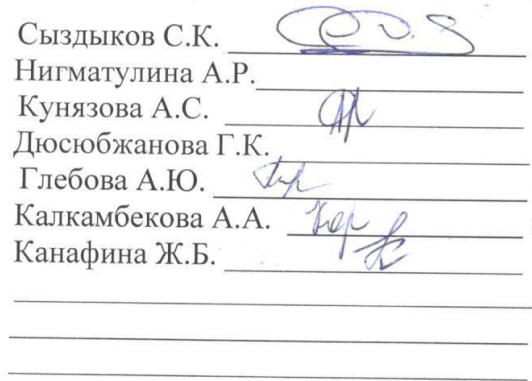 Сыздыков С.К.
Нигматулина А.Р.
Кунязова А.С.
Дюсюбжанова Г.К.
Глебова А.Ю.
Калкамбекова А.А.
Канафина Ж.Б.